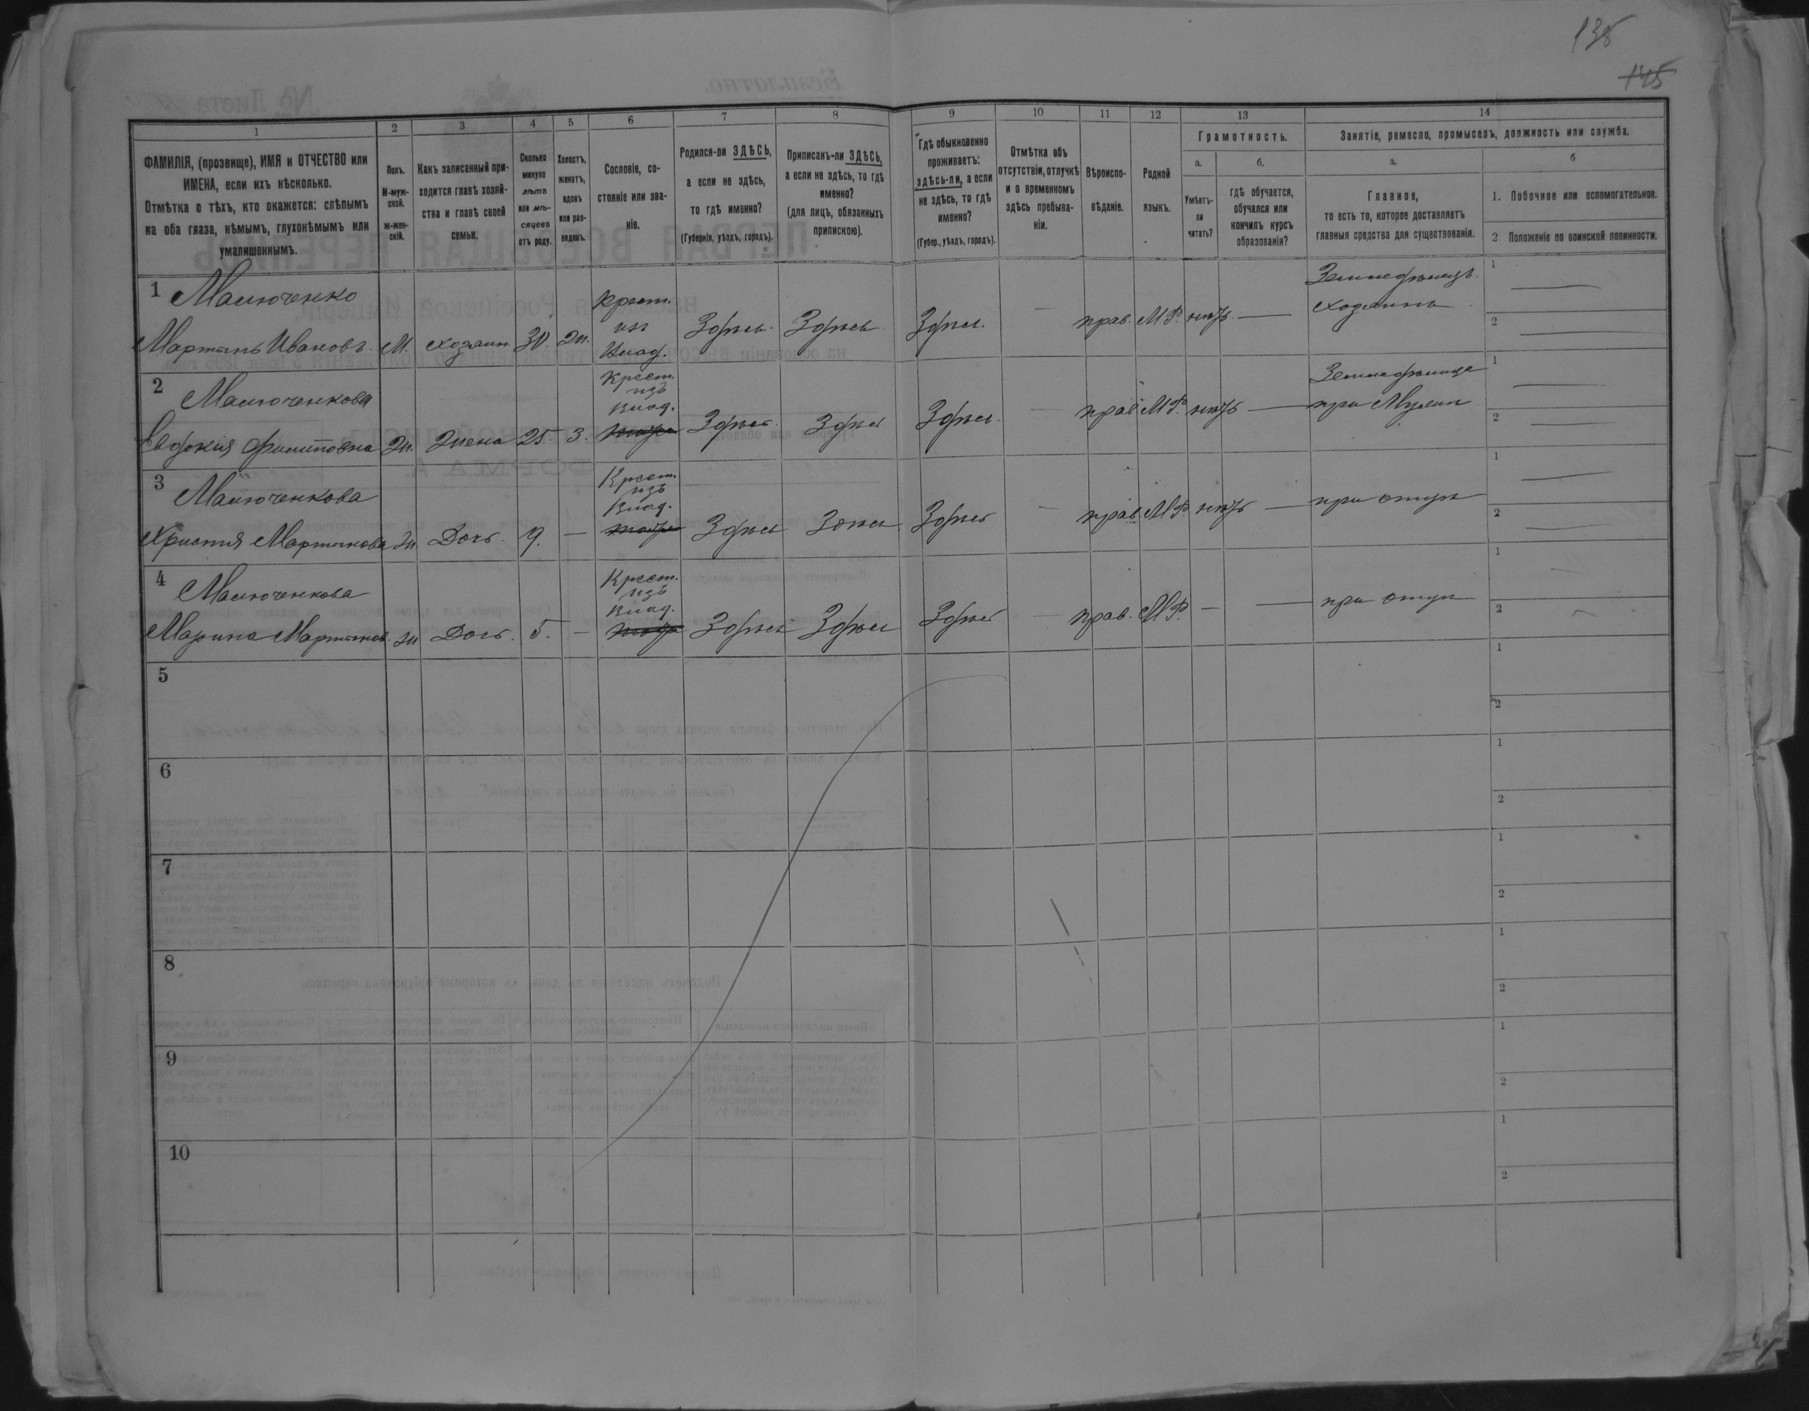 138
145
1
2
3
4
5
6
7
8
9
10
11
12
13
14
ФАМИЛІЯ, (прозвище), ИМЯ и ОТЧЕСТВО или
ИМЕНА, если ихъ нѣсколько.
Отмѣтка о тѣхъ, кто окажется: слѣпымъ
на оба глаза, нѣмымъ, глухонѣмымъ или
умалишоннымъ.
Полъ.
М-муж-
ской.
ж-жен-
скій.
Какъ записанный при-
ходится главѣ хозяй-
ства и главѣ своей
семьи.
Сколько
минуло
лѣтъ
или мѣ-
сяцевъ
отъ роду.
Холостъ,
женатъ,
вдовъ
или раз-
веденъ.
Сословіе, со-
стояніе или зва-
ніе.
Родился-ли ЗДѢСЬ,
а если не здѣсь,
то гдѣ именно?
(Губернія, уѣздъ, городъ).
Приписанъ-ли ЗДѢСЬ,
а если не здѣсь, то гдѣ
именно?
(для лицъ, обязанныхъ
припискою).
Гдѣ обыкновенно
проживаетъ:
здѣсь-ли, а если
не здѣсь, то гдѣ
именно?
(Губер., уѣздъ, городъ).
Отмѣтка объ
отсутствіи, отлучкѣ
и о временномъ
здѣсь пребыва-
ніи.
Вѣроиспо-
вѣданіе.
Родной
языкъ.
Грамотность.
а.
Умѣетъ-
ли
читать?
б.
гдѣ обучается,
обучался или
кончилъ курсъ
образованія?
Занятіе, ремесло, промыселъ, должность или служба.
а.
Главное,
то есть то, которое доставляетъ
главныя средства для существованія.
б
1. Побочное или вспомогательное.
2 Положеніе по воинской повинности.
1 Малюченко
Мартынъ Ивановъ М. хозяин 30. ж. Крест. из Влад. Здѣсь Здѣсь Здѣсь — прав. М.Р. нѣтъ — Земледѣлецъ хозяинъ
1 —
2 —
2 Малюченкова
Евдокия Филиповна ж. Жена 25. з. Крест. изъ Влад. Здѣсь Здѣсь Здѣсь — прав. М.Р. нѣтъ — Земледѣлица при мужи
1 —
2 —
3 Малюченкова
Христя Мартинова ж Дочь 9. — Крест. изъ Влад. Здѣсь Здѣсь Здѣсь — прав. М.Р. нѣтъ — при отцѣ
1 —
2 —
4 Малюченкова
Марина Мартинов. ж Дочь. 5. — Крест. изъ Влад. Здѣсь Здѣсь Здѣсь — прав. М.Р. — — при отцѣ
1 —
2 —
5
1
2
6
1
2
7
1
2
8
1
2
9
1
2
10
1
2